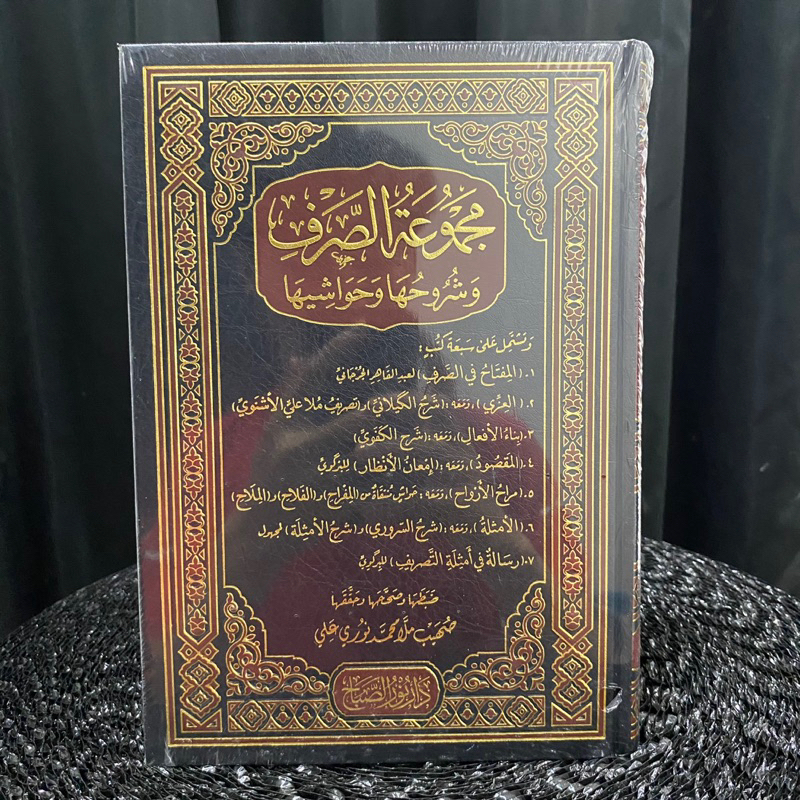 مجموعة الصرف
وشروحها وحواشيها
وتشتمل على سبعة كتب:
١. (المفتاح في الصرف) لعبد القاهر الجرجاني
٢. (العزي)، ومعه: (شرح الكيلاني) و(تصريف ملا علي الأشنوي)
٣. (بناء الأفعال)، ومعه: (شرح الكفوي)
٤. (المقصود)، ومعه: (إمعان الأنظار) للبركوي
٥. (مراح الأرواح)، ومعه: حواش منتقاة من (المفراح) و(الفلاح) و(الملاح)
٦. (الأمثلة)، ومعه: (شرح السروري) و(شرح الأمثلة) لمجهول
٧. (رسالة في أمثلة التصريف) للبركوي
ضبطها وصححها وحققها
صهيب ملا محمد نوري علي
دار نور الصباح